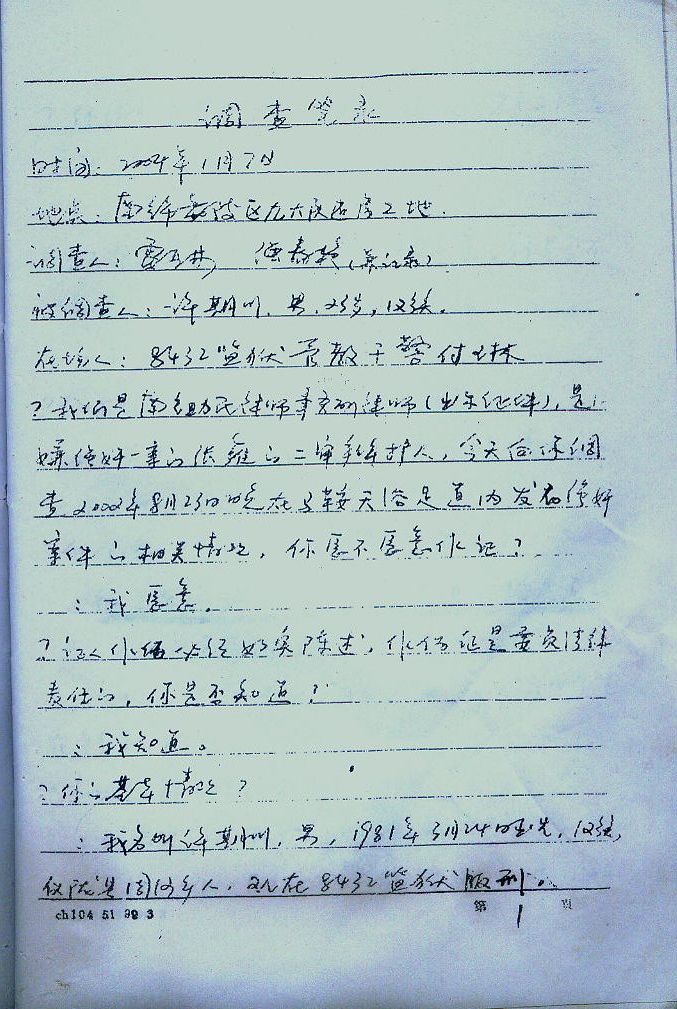 调查笔录
时间：2004年1月7日
地点：南充 区九大队 工地.
调查人：雷 （兼记录）
被调查人：许期川，男，23岁，汉族，
在场人：8432监狱管教干警付 林
？我们是南充助民律师事务所律师（出示证件），是
嫌强奸一案的 的二审辩护人，今天向你调
查2002年8月23日晚在马鞍天 足道内发有强奸
事件的相关情况，你愿不愿意作证？
：我愿意。
？证人作证必须如实陈述，作伪证是要负法律
责任的，你是否知道？
：我知道。
？你的基本情况？
：我名叫许期川，男，1981年3月24日出生，汉族，
仪陇县 乡人，现在8432监狱服刑。
ch104 51 99 3 第 1 页